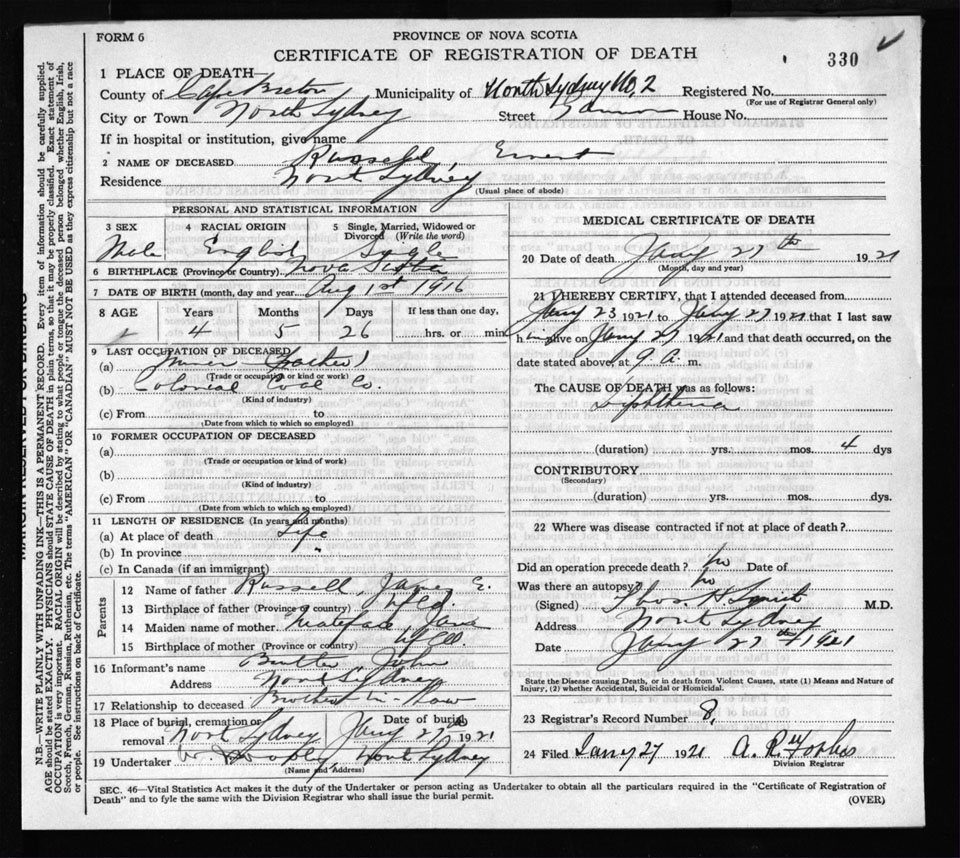 FORM 6
PROVINCE OF NOVA SCOTIA
CERTIFICATE OF REGISTRATION OF DEATH
330
1 PLACE OF DEATH
County of Cape Breton Municipality of North Sydney No, 2 Registered No.
(For use of Registrar General only)
City or Town North Sydney Street House No.
If in hospital or institution, give name
2 NAME OF DECEASED Russell, Ernest
Residence North Sydney
(Usual place of abode)
PERSONAL AND STATISTICAL INFORMATION
3 SEX 4 RACIAL ORIGIN 5 Single, Married, Widowed or Divorced (Write the word)
Male English Single
6 BIRTHPLACE (Province or Country) Nova Scotia
7 DATE OF BIRTH (month, day and year) Aug 1st 1916
8 AGE Years Months Days If less than one day,
4 5 26 hrs. or min.
9 LAST OCCUPATION OF DECEASED
(a) Miner (Father)
(Trade or occupation or kind of work)
(b) Colonial Coal Co.
(Kind of industry)
(c) From to
(Date from which to which so employed)
10 FORMER OCCUPATION OF DECEASED
(a)
(Trade or occupation or kind of work)
(b)
(Kind of industry)
(c) From to
(Date from which to which so employed)
11 LENGTH OF RESIDENCE (In years and months)
(a) At place of death Life
(b) In province "
(c) In Canada (if an immigrant)
Parents
12 Name of father Russell, James E.
13 Birthplace of father (Province or country) Nfld.
14 Maiden name of mother Jane
15 Birthplace of mother (Province or country) Nfld.
16 Informant's name Butler John
Address North Sydney
17 Relationship to deceased Brother in Law
18 Place of burial, cremation or removal North Sydney Date of burial Jany 27th 1921
19 Undertaker North Sydney
(Name and Address)
MEDICAL CERTIFICATE OF DEATH
20 Date of death Jany 27th 1921
(Month, day and year)
21 I HEREBY CERTIFY, that I attended deceased from
Jany 23 1921 to Jany 27 1921 that I last saw
him alive on Jany 27 1921 and that death occurred, on the
date stated above, at 9 a. m.
The CAUSE OF DEATH was as follows:
Diphtheria
(duration) yrs. mos. 4 dys
CONTRIBUTORY
(Secondary)
(duration) yrs. mos. dys.
22 Where was disease contracted if not at place of death?
Did an operation precede death? No Date of
Was there an autopsy? No
(Signed) Thos. H M.D.
Address North Sydney
Date Jany 27th 1921
State the Disease causing Death, or in death from Violent Causes, state (1) Means and Nature of
Injury, (2) whether Accidental, Suicidal or Homicidal.
23 Registrar's Record Number 8,
24 Filed Jany 27 1921 A. R. Forbes
Division Registrar
SEC. 46—Vital Statistics Act makes it the duty of the Undertaker or person acting as Undertaker to obtain all the particulars required in the "Certificate of Registration of
Death" and to fyle the same with the Division Registrar who shall issue the burial permit.
(OVER)
MARGIN RESERVED FOR BINDING
N.B.—WRITE PLAINLY WITH UNFADING INK—THIS IS A PERMANENT RECORD. Every item of information should be carefully supplied.
AGE should be stated EXACTLY. PHYSICIANS should STATE CAUSE OF DEATH in plain terms, so that it may be properly classified. Exact statement of
OCCUPATION is very important. RACIAL ORIGIN will be described by stating to what people or tongue the deceased person belonged whether English, Irish,
Scotch, French, German, Russian, Ruthenian, etc. The terms "AMERICAN" OR "CANADIAN" MUST NOT BE USED as they express citizenship but not a race
or people. See instructions on back of Certificate.